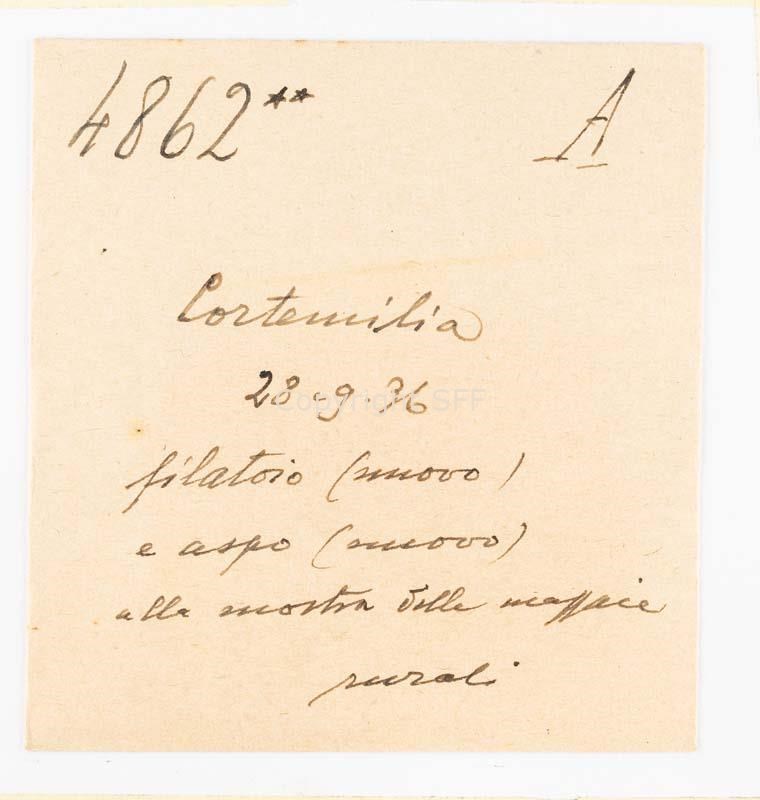 4862** A
Cortemilia
28-9 36
Copyright SFF
filatoio (nuovo)
e aspo (nuovo)
alla mostra delle massaie
rurali